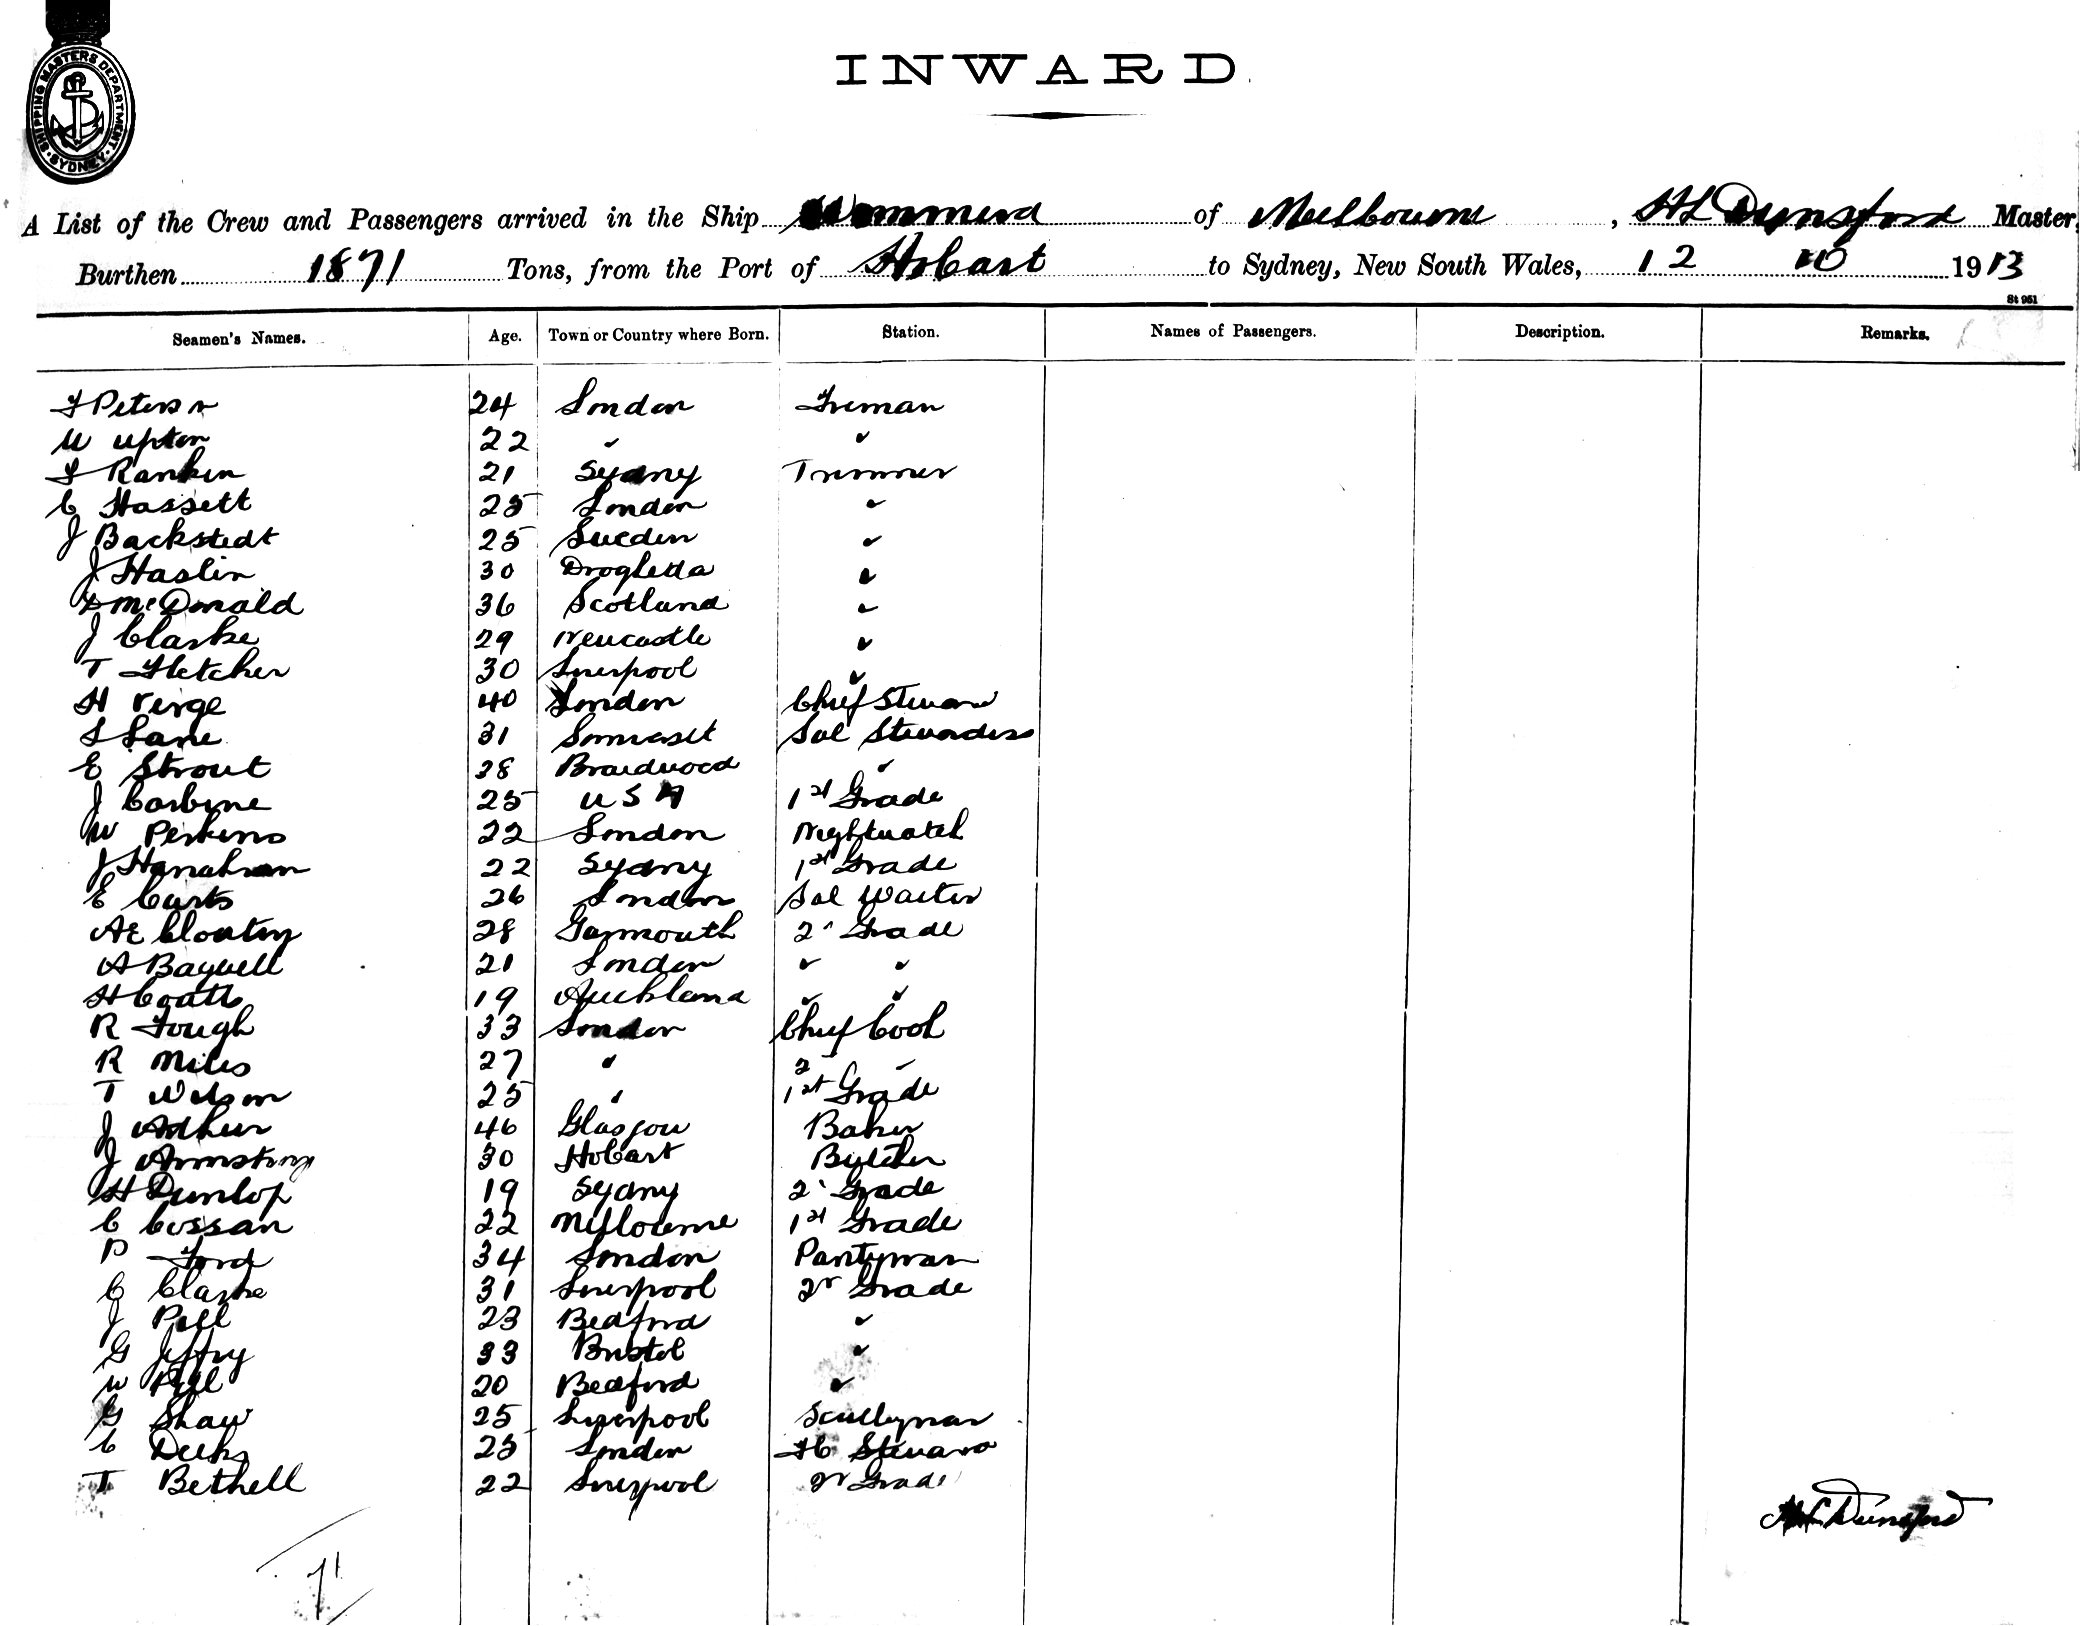 SHIPPING MASTERS DEPARTMENT. SYDNEY
INWARD
A List of the Crew and Passengers arrived in the Ship Wimmera of Melbourne, HL Dunsford Master,
Burthen 1871 Tons, from the Port of Hobart to Sydney, New South Wales, 12 10 1913
St 951
Seamen's Names. Age. Town or Country where Born. Station. Names of Passengers. Description. Remarks.
F Peterson 24 London Fireman
W Upton 22 " "
F Rankin 21 Sydney Trimmer
C Hassett 25 London "
J Backstedt 25 Sweden "
J Haslin 30 Drogheda "
D McDonald 36 Scotland "
J Clarke 29 Newcastle "
T Fletcher 30 Liverpool "
H Verge 40 London Chief Steward
S Lane 31 Somerset Sal Stewardess
E Strout 28 Braidwood "
J Corbyne 25 U S A 1st Grade
W Perkins 22 London Nightwatch
J Hanahran 22 Sydney 1st Grade
E Curts 26 London Sal Waiter
AE 28 Yarmouth 2" Grade
A Bagwell 21 London " "
H Coatts 19 Auckland " "
R Tough 33 London Chief Cook
R Miles 27 " 2 "
T Wilson 25 " 1st Grade
J Arthur 46 Glasgow Baker
J Armstrong 30 Hobart Butcher
H Dunlop 19 Sydney 2" Grade
C Cossan 22 Melbourne 1st Grade
P Ford 34 London Pantryman
C Clarke 31 Liverpool 2r Grade
J Pell 23 Bedford "
G Jeffry 33 Bristol "
W Pell 20 Bedford "
G Shaw 25 Liverpool Scullyman
C Deeks 25 London FC Steward
T Bethell 22 Liverpool 2r Grade
HL Dunsford